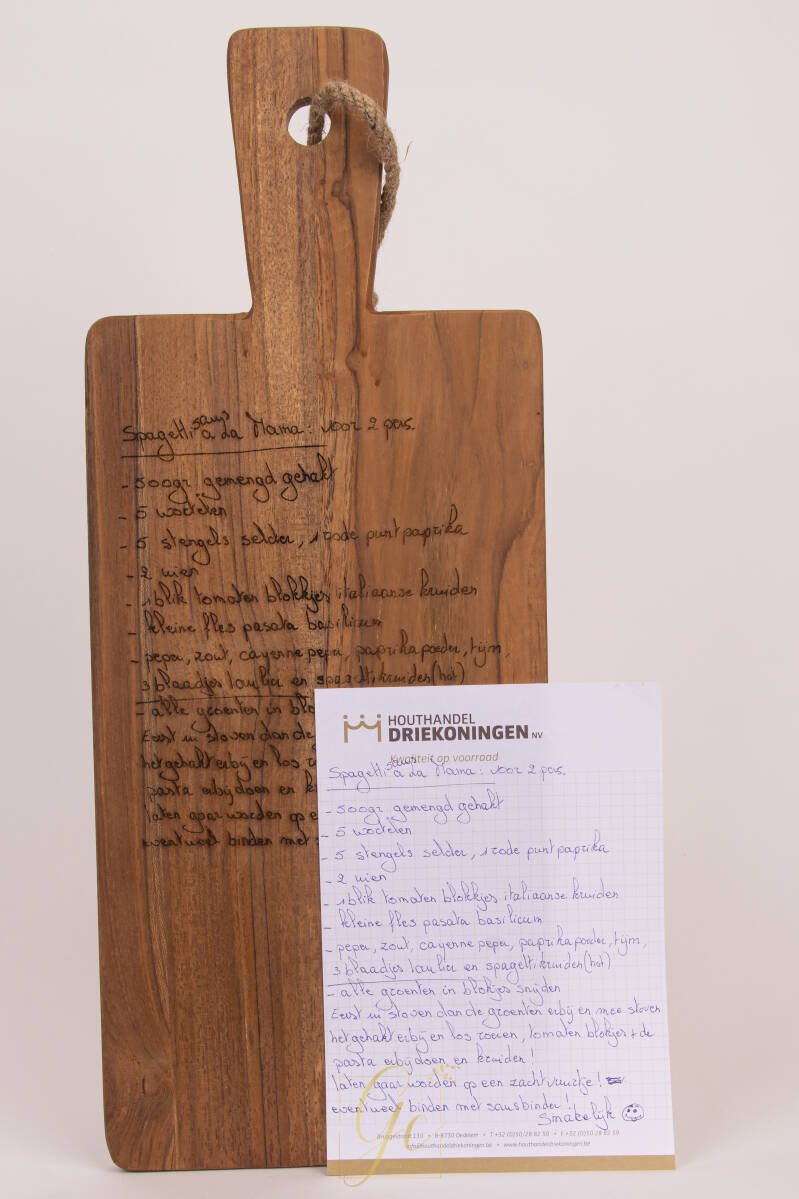 Spagetti saus a da Mama: voor 2 pers.
- 500gr gemengd gehakt
- 5 wortelen
- 5 stengels selder, 1 rode puntpaprika
- 2 uien
- 1 blik tomaten blokkjes italiaanse kruiden
- kleine fles pasata basilicum
- peper, zout, cayenne peper, paprikapoeder, tijm,
3 blaadjes laurier en spagettikruiden (hot)
- alle groenten in blo
Eerst ui stoven dan de g
het gehakt erbij en los ro
pasta erbij doen en k
laten gaar worden op e
eventueel binden met s
HOUTHANDEL
DRIEKONINGEN NV
Kwaliteit op voorraad
Spagetti saus a da Mama: voor 2 pers.
- 500gr gemengd gehakt
- 5 wortelen
- 5 stengels selder, 1 rode puntpaprika
- 2 uien
- 1 blik tomaten blokkjes italiaanse kruiden
- kleine fles pasata basilicum
- peper, zout, cayenne peper, paprikapoeder, tijm,
3 blaadjes laurier en spagettikruiden (hot)
- alle groenten in blokjes snijden
Eerst ui stoven dan de groenten erbij en mee stoven
het gehakt erbij en los roeren, tomaten blokjes + de
pasta erbij doen en kruiden!
laten gaar worden op een zacht vuurtje!
eventueel binden met sausbinder!
Smakelijk
Bruggestraat 110 • B-8730 Oedelem • T +32 (0)50/28 82 50 • F +32 (0)50/28 82 59
info@houthandeldriekoningen.be • www.houthandeldriekoningen.be